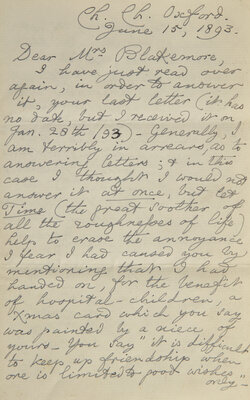 Ch. Ch. Oxford.
June 15, 1893.
Dear Mrs Blakemore,
I have just read over
again, in order to answer
it, your last letter (it has
no date, but I received it on
Jan. 28th /93) - Generally, I
am terribly in arrears, as to
answering letters; & in this
case I thought I would not
answer it at once, but let
Time (the great soother of
all the roughnesses of life)
helps to erase the annoyance
I fear I had caused you by
mentioning that I had
handed on, for the benefit
of hospital-children, a
Xmas card which you say
was painted by a niece of
yours - You say "it is difficult
to keep up friendship when
one is limited to good wishes
only."